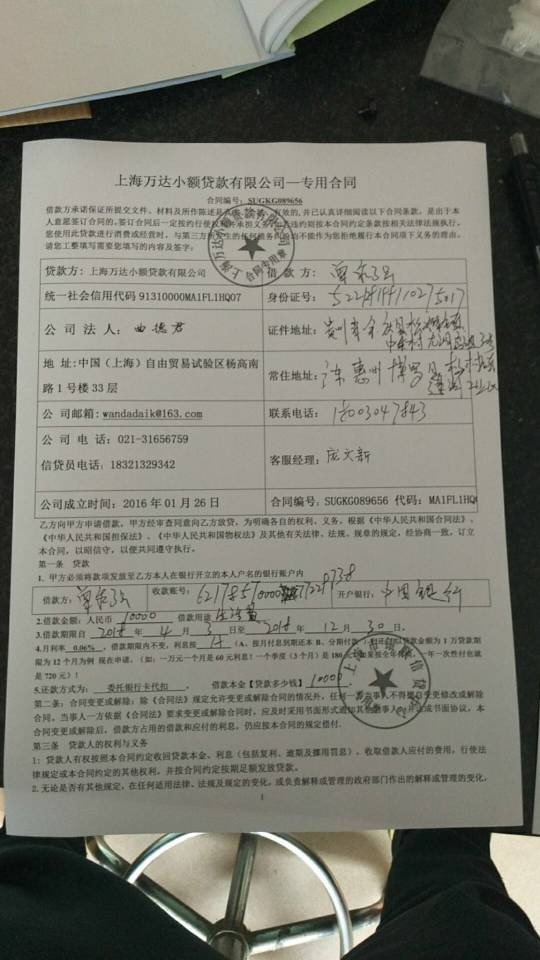 上海万达小额贷款有限公司—专用合同
合同编号：SUGKG089656
借款方承诺保证所提交文件、材料及所作陈述是
有效的,并已真详细阅读以下合同条款，是由于本
您使用此贷款进行消费或经营时，与第三方
均不能作为您拒绝履行本合同项下义务的理由。
请您工整填写需要您填写的内容及签字：
合同专用章
贷款方：上海万达小额贷款有限公司 借 款 方：
统一社会信用代码 91310000MA1FL1HQ07 身份证号：
公 司 法 人：曲德君 证件地址：
地 址:中国（上海）自由贸易试验区杨高南 常住地址：
路1号楼33层
公 司邮箱：wandadaik@163.com 联系电话：18003047843
公 司 电 话：021-31656759
信贷员电话：18321329342 客服经理：庞文新
公司成立时间：2016 年 01 月 26 日 合同编号：SUGKG089656 代码：MA1FL1HQ
乙方向甲方申请借款，甲方经审查同意向乙方放贷，为明确各自的权利、义务，根据《中华人民共和国合同法》、
《中华人民共和国担保法》、《中华人民共和国物权法》及其他有关法律、法规、规章的规定，经协商一致，订立
本合同，以昭信守，以便共同遵守执行。
第一条 贷款
1. 甲方必须将款项发放至乙方本人在银行开立的本人户名的银行账户内
借款方： 收款账号： 开户银行：中国银行
2.借款金额：人民币 10000 借款用途 生活费
3.借款期限自 2018 年 4 月 3 日至 2018 年 12 月 30 日。
4.月利率 0.06%，借款期限内不变，利息按 （A、按月付息到期还本 B、分期付款
限为 12 个月为例 现在申请，(如：一万元一个月是 60 元利息！一个季度（3 个月）是 180
是 720 元）！
5.还款方式为： 委托银行卡代扣 ， 借款本金【贷款多少钱】 10000
第二条：合同变更或解除：除《合同法》规定允许变更或解除合同的情况外，任何
合同。当事人一方依据《合同法》要求变更或解除合同时，应及时采用书面形式通知其他
合同变更或解除后，借款方占用的借款和应付的利息，仍应按本合同的规定偿付.
第三条 贷款人的权利与义务
1：贷款人有权按照本合同约定收回贷款本金、利息（包括复利、逾期及挪用罚息），收取借款人应付的费用，行使法
律规定或本合同约定的其他权利，并按合同约定按期足额发放贷款。
2. 无论是否有其他规定，在任何适用法律、法规及规定的变化，或负责解释或管理的政府部门作出的解释或管理的变化，
1